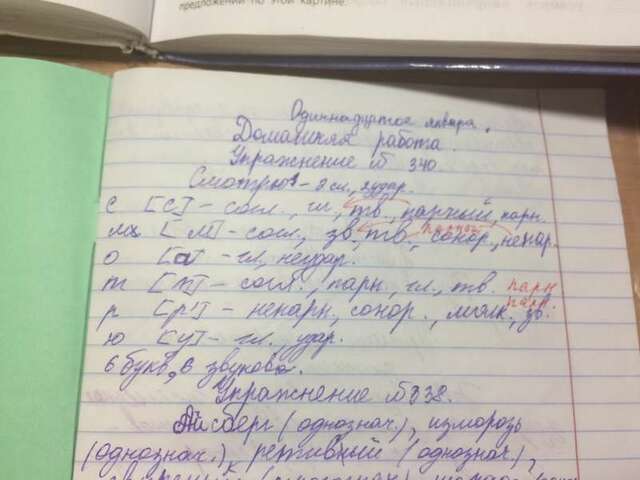 предложении по этой картине.
Одиннадцатое января.
Домашняя работа.
Упражнение № 340.
Смотрю - 2 сл., 1 удар.
с [с] - согл., гл., тв., парный, парн.
м [м] - согл., зв., тв., сонор., непар.
о [а] - гл., неудар.
т [т] - согл., парн., гл., тв. парн
парн.
р [р'] - непарн., сонор., мягк., зв.
ю [у] - гл., удар.
6 букв, 6 звуков.
Упражнение № 338.
Айсберг (однознач.), изморозь
(однознач.), ретивый (однознач.),